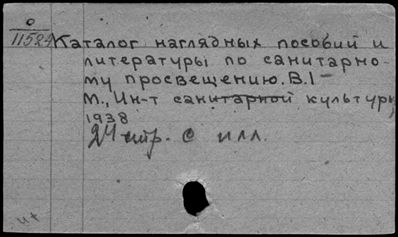 0
11524
Каталог наглядных пособий и
литературы по санитарно-
му просвещению. В.I-
М., Ин-т санитарной культуры,
1938
24 стр. с илл.